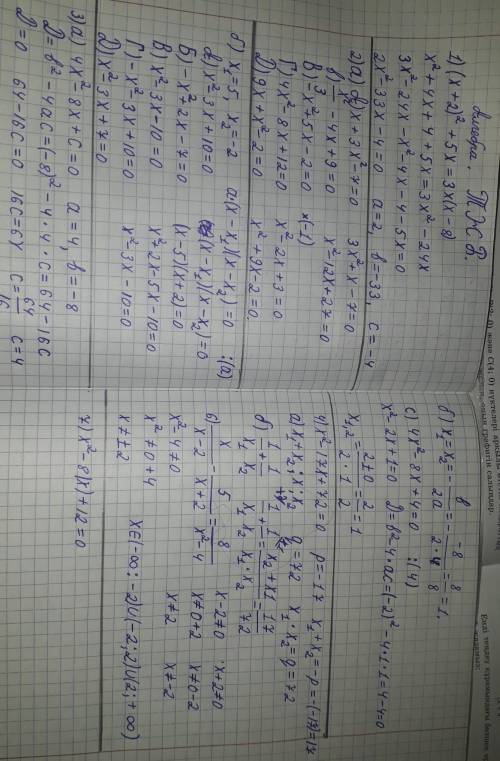 алгебра. ТЖБ.
1) (x+2)² + 5x = 3x(x-8)
x² + 4x + 4 + 5x = 3x² - 24x
3x² - 24x - x² - 4x - 4 - 5x = 0
2x² - 33x - 4 = 0 a = 2 b = -33, c = -4
x + 3x² - 7 = 0 3x² + x - 7 = 0
- 4x + 9 = 0 x² - 12x + 27 = 0
В) -x² + 5x - 2 = 0 *(-1)
Г) 4x² - 8x + 12 = 0 x² - 2x + 3 = 0
Д) 9x + x² - 2 = 0 x² + 9x - 2 = 0
б) x₁ = -5 x₂ = -2 a(x - x₁)(x - x₂) = 0 :(a)
x² - 3x + 10 = 0 (x - x₁)(x - x₂) = 0
Б) -x² + 2x - 7 = 0 (x - 5)(x + 2) = 0
В) x² - 3x - 10 = 0 x² + 2x - 5x - 10 = 0
Г) -x² - 3x + 10 = 0 x² - 3x - 10 = 0
Д) x² - 3x + 7 = 0
3) a) 4x² - 8x + c = 0 a = 4, b = -8
D = b² - 4ac = (-8)² - 4 · 4 · c = 64 - 16c
D = 0 64 - 16c = 0 16c = 64 c = 64/16 c = 4
б) x₁ = x₂ = - b/2a = - -8/2·4 = 8/8 = 1.
c) 4x² - 8x + 4 = 0 :(4)
x² - 2x + 1 = 0 D = b² - 4·ac = (-2)² - 4·1·1 = 4 - 4 = 0
x₁,₂ = 2±0/2·1 = 2/2 = 1
4) x² - 17x + 72 = 0 p = -17 x₁ + x₂ = -p = -(-17) = 17
a) x₁ + x₂; x₁·x₂ q = 72 x₁ · x₂ = q = 72
б) 1/x₁ + 1/x₂ 1/x₁ + 1/x₂ = x₂ + x₁/x₁·x₂ = 17/72
6) x/x-2 - 5/x+2 = 8/x²-4 x - 2 ≠ 0 x + 2 ≠ 0
x² - 4 ≠ 0 x ≠ 0 + 2 x ≠ 0 - 2
x² ≠ 0 + 4 x ≠ 2 x ≠ -2
x ≠ ±2 x∈(-∞; -2)∪(-2; 2)∪(2; +∞)
7) x² - 8|x| + 12 = 0